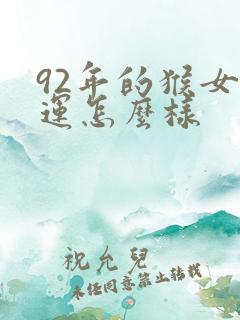 92年的猴女
運怎麼樣
祝允兒
未经同意禁止转载